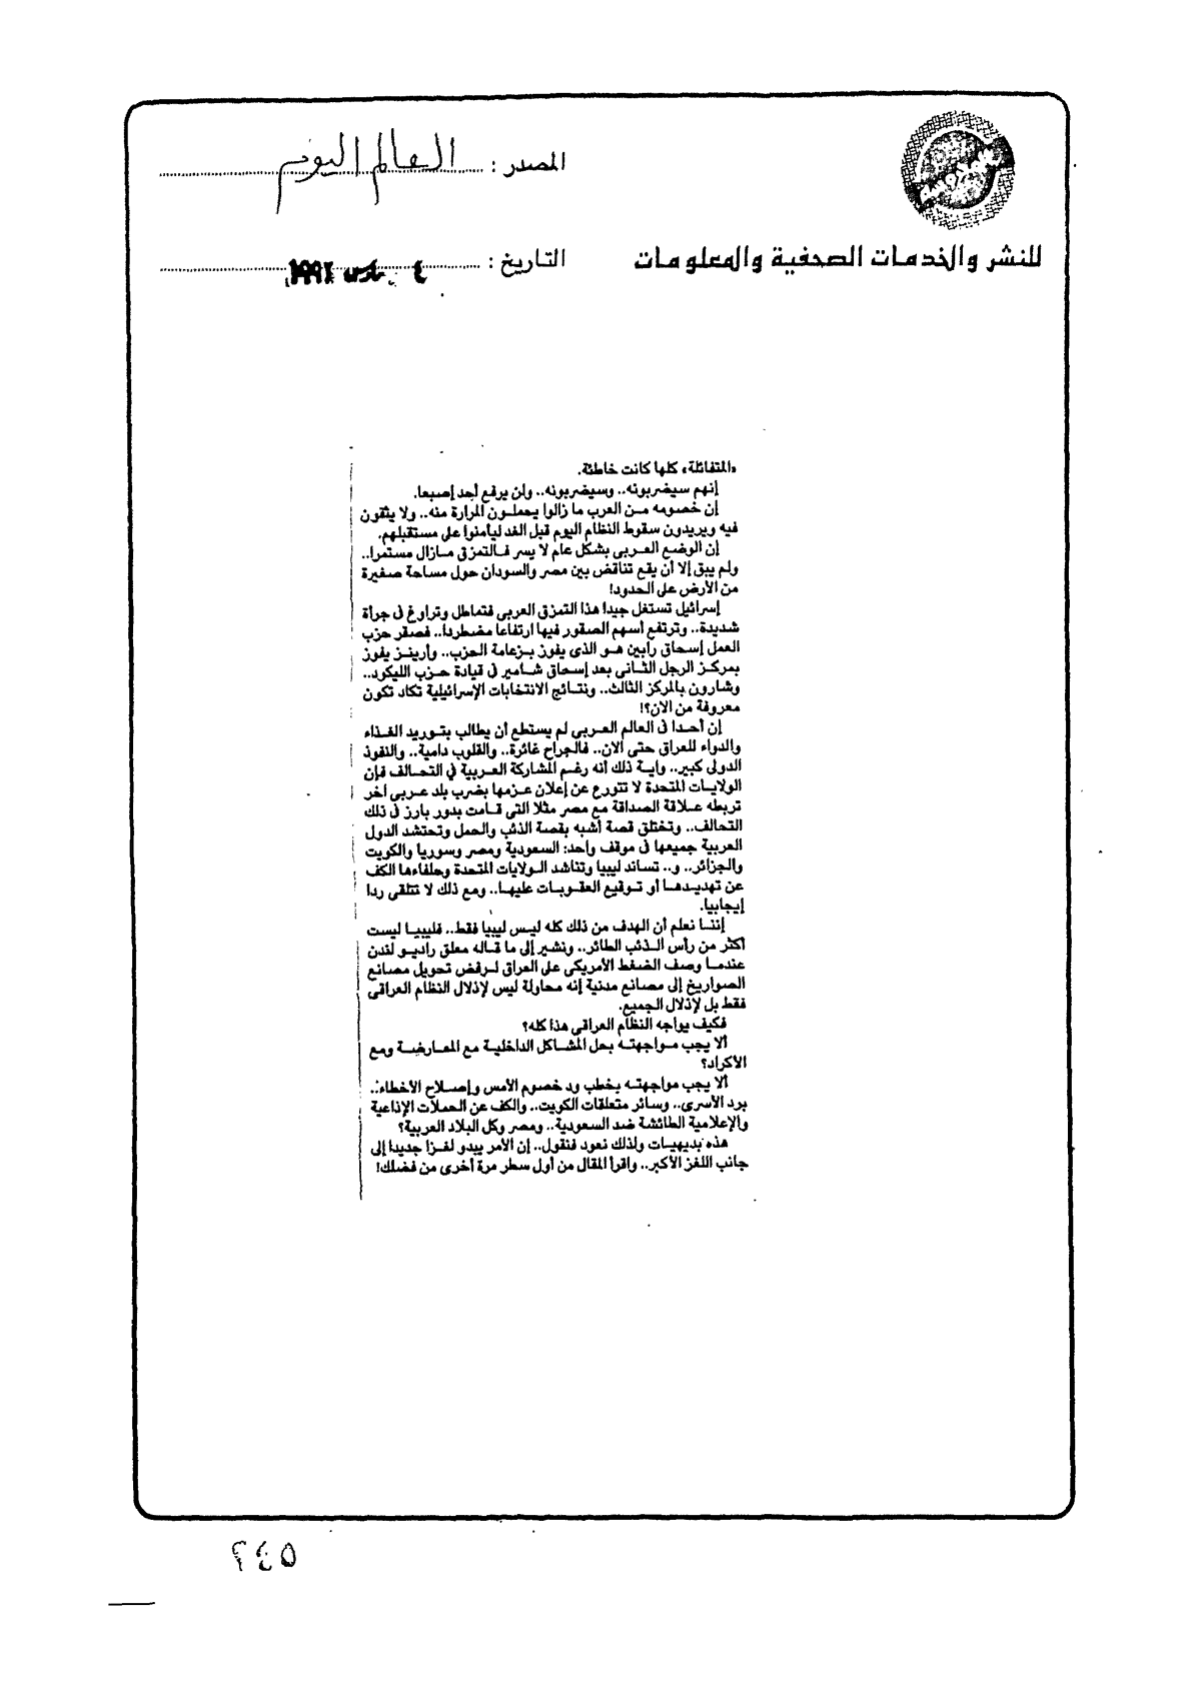 المصدر : العالم اليوم
للنشر والخدمات الصحفية والمعلومات
التاريخ : ٤ مارس ١٩٩٢
«المتفائلة» كلها كانت خاطئة.
إنهم سيضربونه.. وسيضربونه.. ولن يرفع أحد إصبعا.
إن خصومه من العرب ما زالوا يحملون المرارة منه.. ولا يثقون
فيه ويريدون سقوط النظام اليوم قبل الغد ليأمنوا على مستقبلهم.
إن الوضع العربى بشكل عام لا يسر فالتمزق مازال مستمرا..
ولم يبق إلا أن يقع تناقض بين مصر والسودان حول مساحة صغيرة
من الأرض على الحدود!
إسرائيل تستغل جيدا هذا التمزق العربى فتماطل وتراوغ فى جرأة
شديدة.. وترتفع أسهم الصقور فيها ارتفاعا مضطردا.. فصقر حزب
العمل إسحاق رابين هو الذى يفوز بزعامة الحزب.. وأرينز يفوز
بمركز الرجل الثانى بعد إسحاق شامير فى قيادة حزب الليكود..
وشارون بالمركز الثالث.. ونتائج الانتخابات الإسرائيلية تكاد تكون
معروفة من الآن؟!
إن أحدا فى العالم العربى لم يستطع أن يطالب بتوريد الغذاء
والدواء للعراق حتى الآن.. فالجراح غائرة.. والقلوب دامية.. والنفوذ
الدولى كبير.. وآية ذلك أنه رغم المشاركة العربية في التحالف فإن
الولايات المتحدة لا تتورع عن إعلان عزمها بضرب بلد عربى آخر
تربطه علاقة الصداقة مع مصر مثلا التى قامت بدور بارز فى ذلك
التحالف.. وتختلق قصة أشبه بقصة الذئب والحمل وتحتشد الدول
العربية جميعها فى موقف واحد: السعودية ومصر وسوريا والكويت
والجزائر.. و.. تساند ليبيا وتناشد الولايات المتحدة وحلفاءها الكف
عن تهديدها أو توقيع العقوبات عليها.. ومع ذلك لا تتلقى ردا
إيجابيا.
إننا نعلم أن الهدف من ذلك كله ليس ليبيا فقط.. فليبيا ليست
أكثر من رأس الذئب الطائر.. ونشير إلى ما قاله معلق راديو لندن
عندما وصف الضغط الأمريكى على العراق لرفض تحويل مصانع
الصواريخ إلى مصانع مدنية إنه محاولة ليس لإذلال النظام العراقى
فقط بل لإذلال الجميع.
فكيف يواجه النظام العراقى هذا كله؟
ألا يجب مواجهته بحل المشاكل الداخلية مع المعارضة ومع
الأكراد؟
ألا يجب مواجهته بخطب ود خصوم الأمس وإصلاح الأخطاء..
برد الأسرى.. وسائر متعلقات الكويت.. والكف عن الحملات الإذاعية
والإعلامية الطائشة ضد السعودية.. ومصر وكل البلاد العربية؟
هذه بديهيات ولذلك نعود فنقول.. إن الأمر يبدو لغزا جديدا إلى
جانب اللغز الأكبر.. واقرأ المقال من أول سطر مرة أخرى من فضلك!